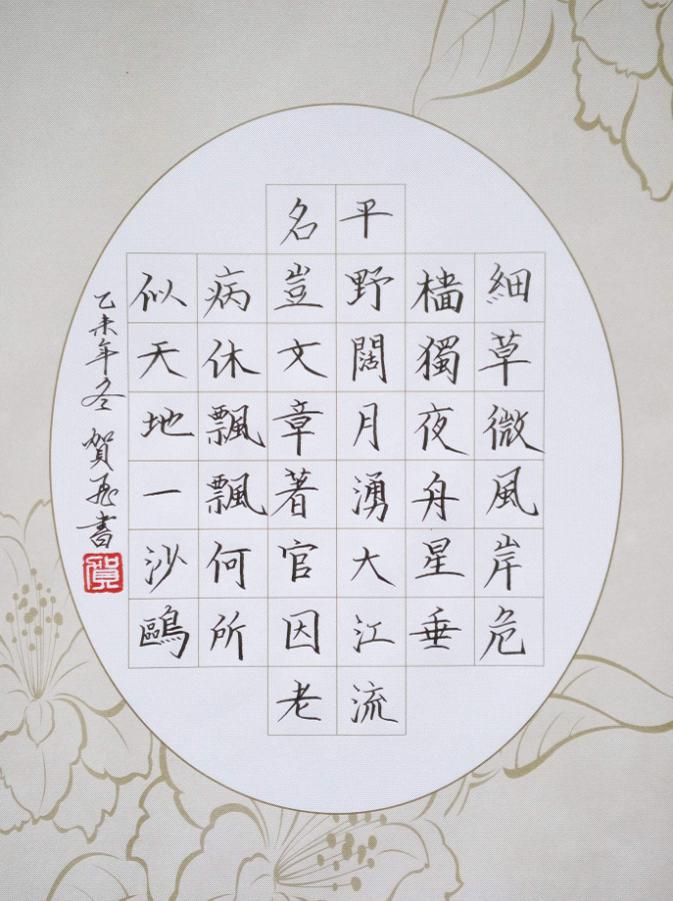 細草微風岸危
檣獨夜舟星垂
平野闊月湧大江流
名豈文章著官因老
病休飄飄何所
似天地一沙鷗
乙未年冬賀飛書
賀